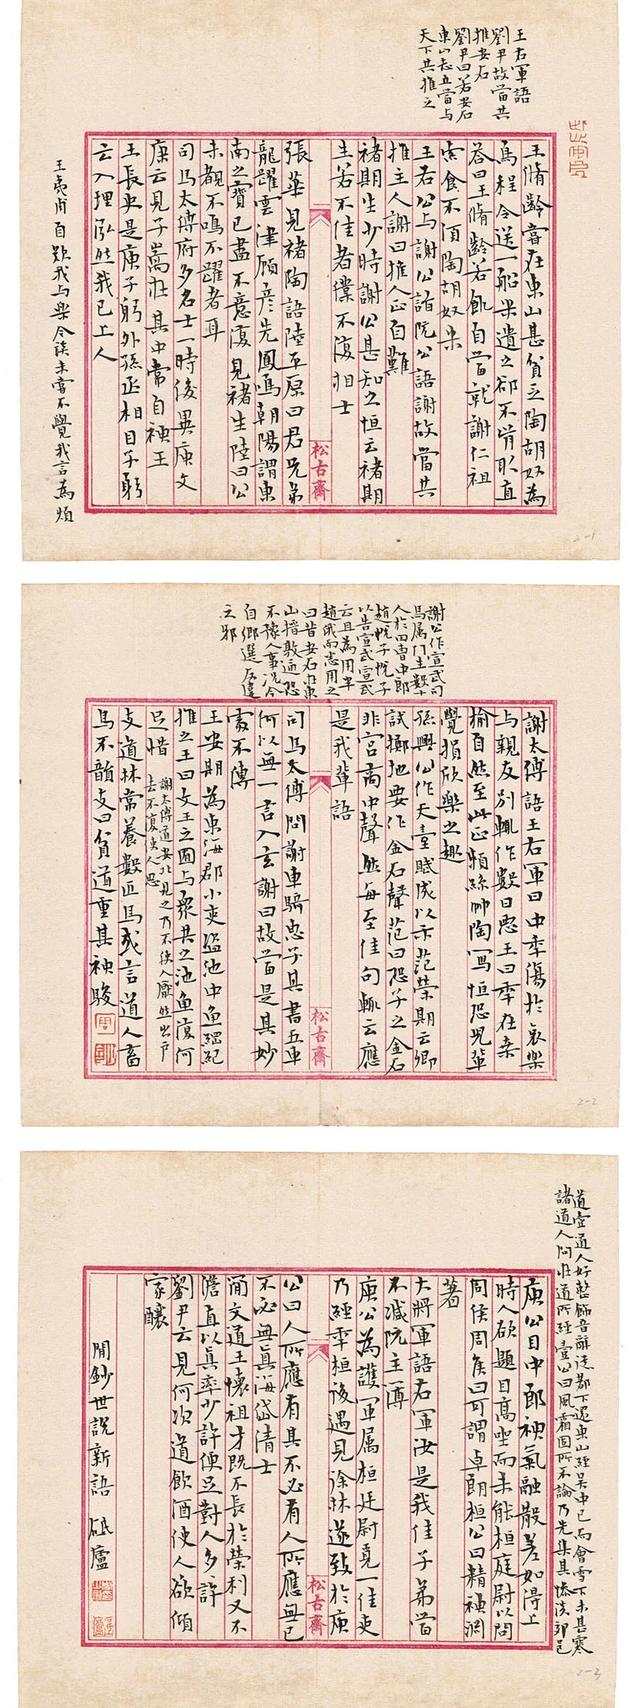 王右軍語
劉尹故當共
推安石
劉尹曰若安石
東山志立當與
天下共推之
王脩齡嘗在東山甚貧乏陶胡奴為
烏程令送一船米遺之卻不肯取直
答曰王脩齡若飢自當就謝仁祖
索食不須陶胡奴米
王右公與謝公詣阮公語謝故當共
推主人謝曰推人正自難
褚期生少時謝公甚知之恒云褚期
生若不佳者僕不復相士
松古齋
張華見褚陶語陸平原曰君兄弟
龍躍雲津顧彥先鳳鳴朝陽謂東
南之寶已盡不意復見褚生陸曰公
未覩不鳴不躍者耳
司馬太傅府多名士一時俊異庾文
康云見子嵩在其中常自神王
王長史是庾子躬外孫丞相目子躬
云入理泓然我已上人
王夷甫自歎我與樂令談未嘗不覺我言為煩
2-1
謝公作宣武司
馬屬門生數十
人於田曹中郎
趙悅子悅子
以告宣武宣武
云且為用半
趙俄而悉用之
曰昔安石在東
山搢敦逼恐
不豫人事況今
自鄉選反違
之邪
謝太傅語王右軍曰中年傷於哀樂
與親友別輒作數日惡王曰年在桑
榆自然至此正賴絲竹陶寫恒恐兒輩
覺損欣樂之趣
孫興公作天臺賦成以示范榮期云卿
試擲地要作金石聲范曰恐子之金石
非宮商中聲然每至佳句輒云應
是我輩語
松古齋
司馬太傅問謝車騎惠子其書五車
何以無一言入玄謝曰故當是其妙
處不傳
王安期為東海郡小吏盜池中魚綱紀
推之王曰文王之囿與眾共之池魚復何
足惜
謝太傅道安北見之乃不使人厭然出戶
去不復使人思
支道林常養數匹馬或言道人畜
馬不韻支曰貧道重其神駿
2-2
道壹道人好整飾音辭從都下還東山經吳中已而會雪下未甚寒
諸道人問在道所經壹公曰風霜固所不論乃先集其慘澹郊邑
庾公目中郎神氣融散差如得上
時人欲題目高坐而未能桓庭尉以問
周侯周侯曰可謂卓朗桓公曰精神淵
著
大將軍語右軍汝是我佳子弟當
不減阮主簿
庾公為護軍屬桓廷尉覓一佳吏
乃經年桓後遇見徐林遂致於庾
松古齋
公曰人所應有其不必有人所應無己
不必無真海岱清士
簡文道王懷祖才既不長於榮利又不
澹直以真率少許便足對人多許
劉尹云見何次道飲酒使人欲傾
家釀
閒鈔世說新語
2-3